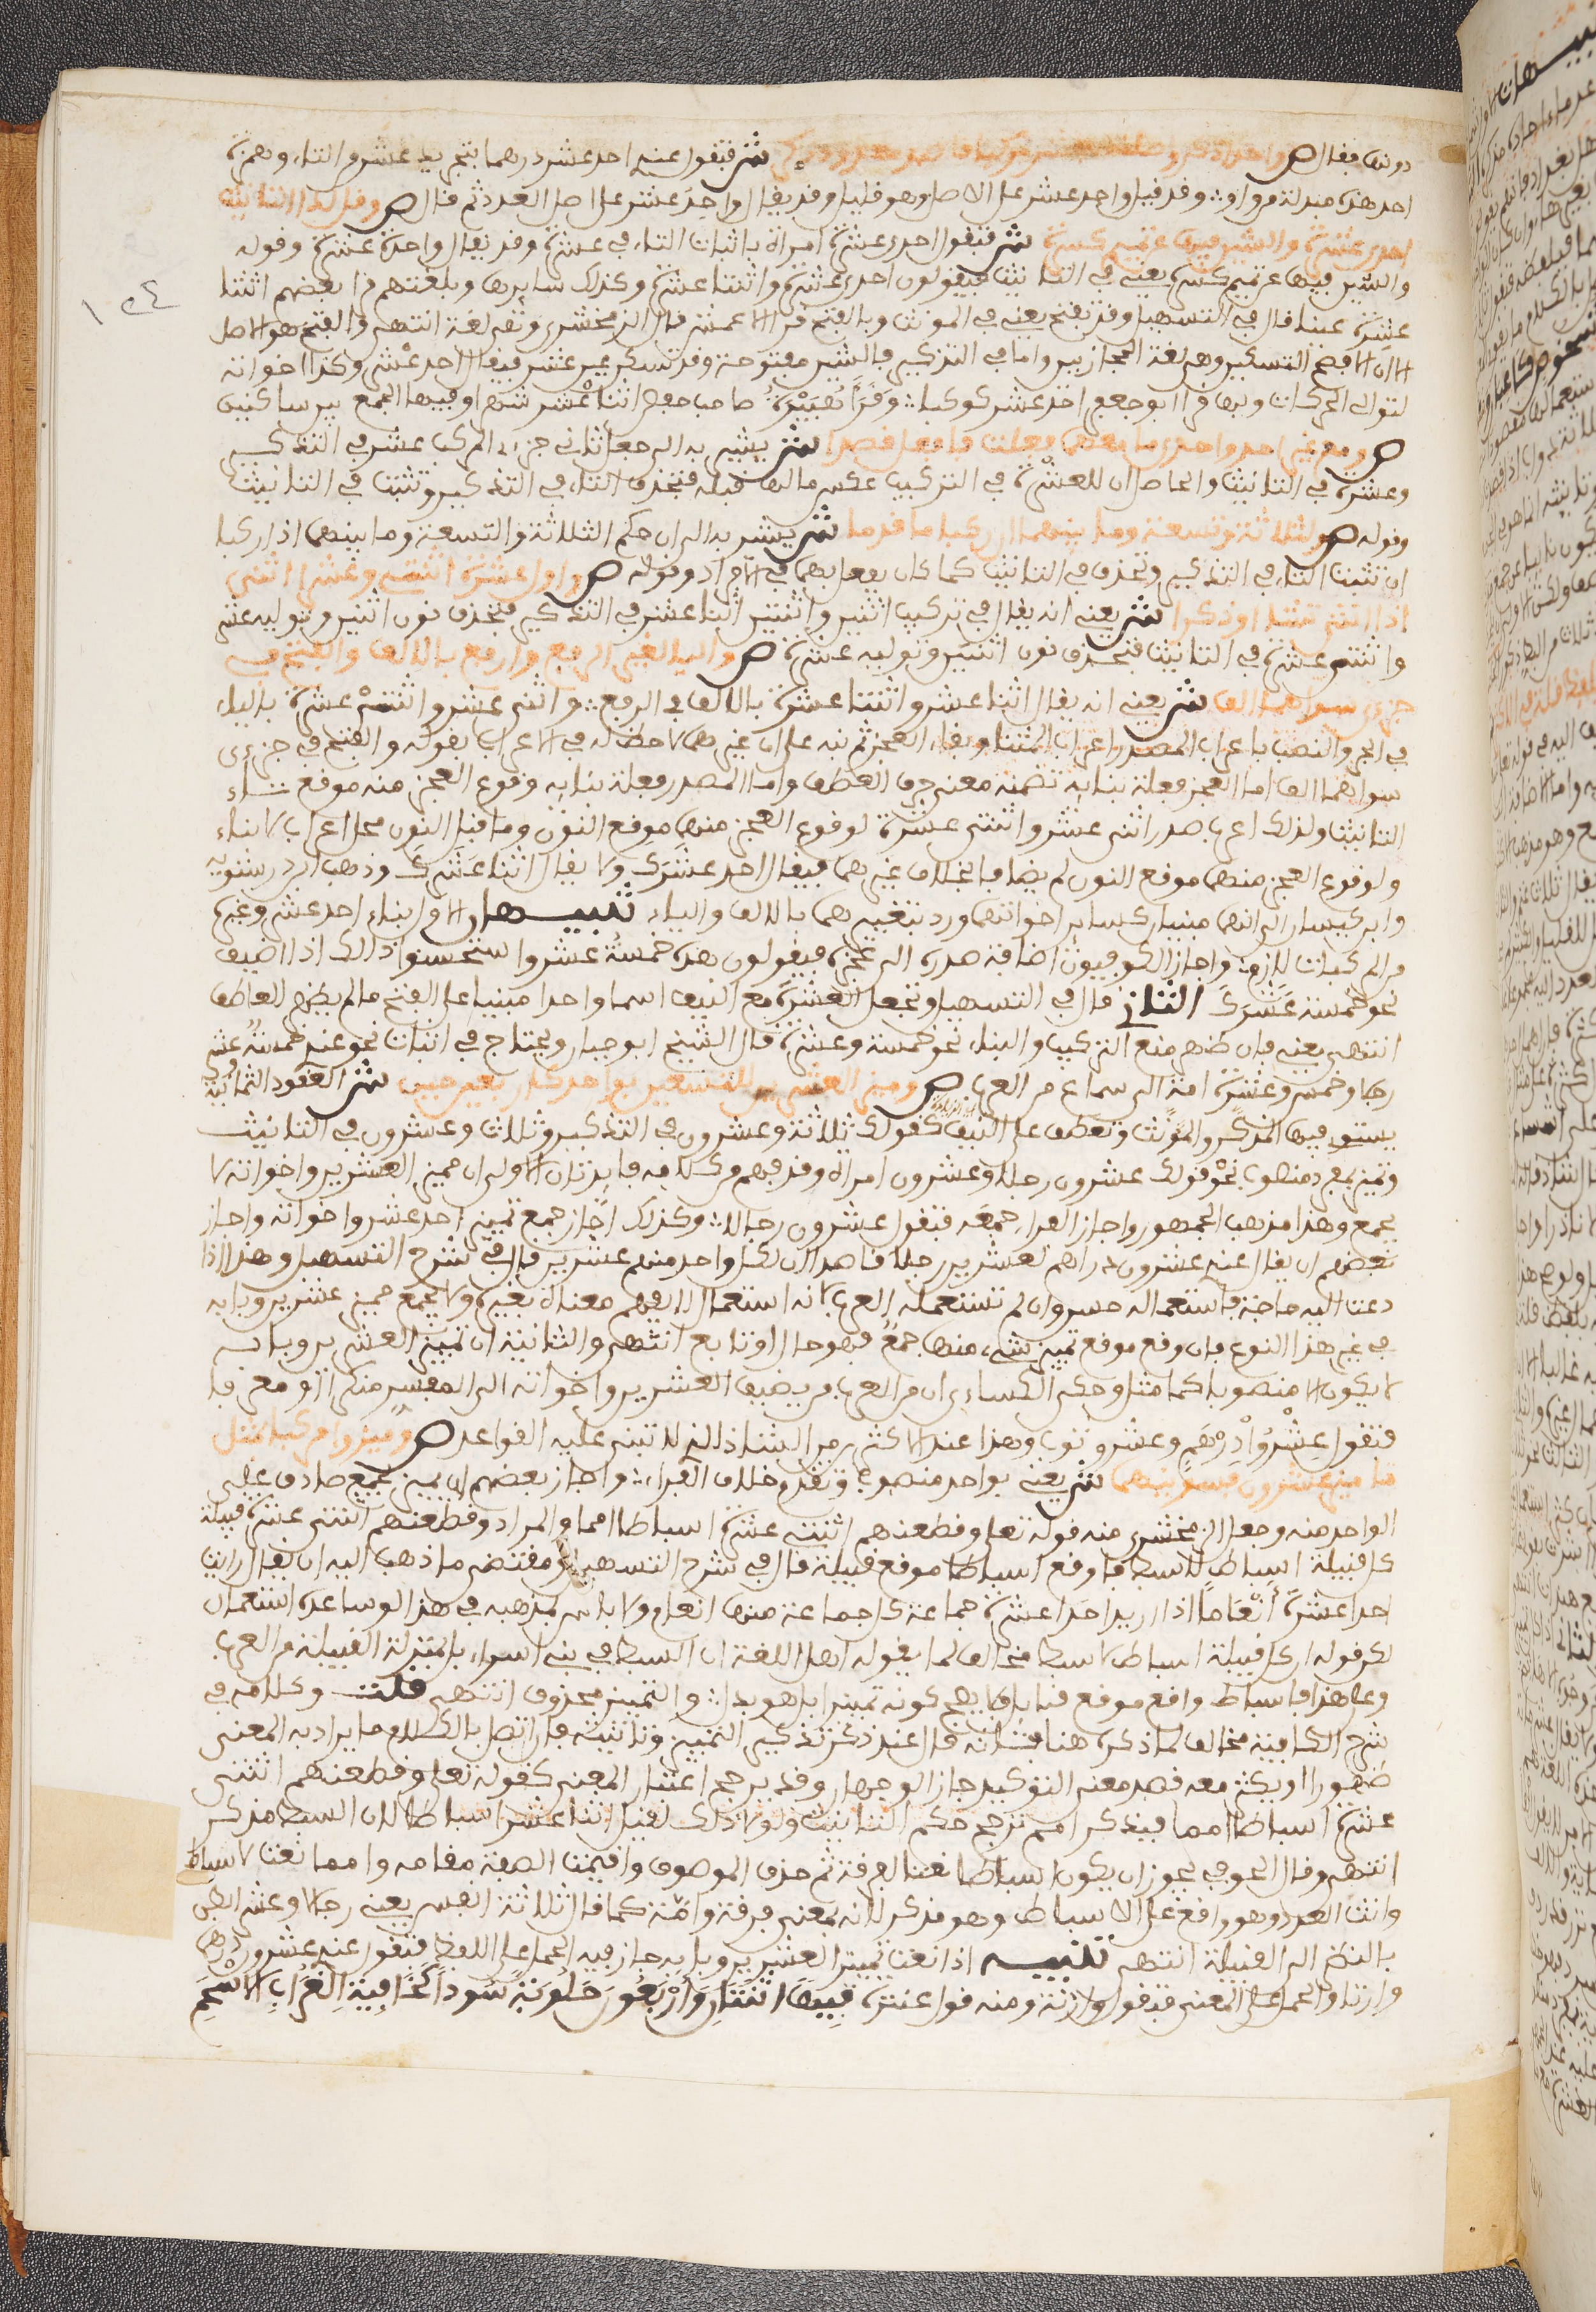 دونها فقال ص واحد اذكر وصلنه بعشر مركبا قاصد معدود ذكر ش فتقول عندي احد عشر درهما بتجريد عشر من التاء وهمزة
احد هذه مبدلة من واو وقد قيل وحد عشر على الاصل وهو قليل وقد يقال واحد عشر على اصل العدد ثم قال ص وقل لدى التانيث
احدى عشرة والشين فيها عن تميم كسرة ش فتقول احدى عشرة امراة باثبات التاء في عشرة وقد يقال واحدة عشرة وقوله
والشين فيها عن تميم كسرة يعني في التانيث فيقولون احدى عشرة واثنتا عشرة وكذلك سايرها وبلغتهم قرا بعضهم اثنتا
عشرة عينا قال في التسهيل وقد تفتح يعني في المونث وبالفتح قرا الاعمش قال الزمخشري وهي لغة انتهى والفتح هو الاصل
الا ان الافصح التسكين وهي لغة الحجازيين واما في التذكير فالشين مفتوحة وقد تسكن عين عشر فيقال احد عشر وكذا اخواته
لتوالي الحركات وبها قرا ابو جعفر احد عشر كوكبا وقرا هبيرة صاحب حفص اثنا عشر شهرا وفيها الجمع بين ساكنين
ص ومع غير احد واحدى ما معهما فعلت فافعل قصدا ش يشير به الى جعل ثاني جزءي المركب عشر في التذكير
وعشرة في التانيث والحاصل ان للعشرة في التركيب عكس مالها قبله فتحذف التاء في التذكير وتثبت في التانيث
وقوله ص ولثلاثة وتسعة وما بينهما ان ركبا ما قدما ش يشير به الى ان حكم الثلاثة والتسعة وما بينهما اذا ركبا
ان تثبت التاء في التذكير وتحذف في التانيث كما كان يفعل بهما في الافراد وقوله ص واول عشرة اثنتي وعشرا اثني
اذا انثى تشا او ذكرا ش يعني انه يقال في تركيب اثنين واثنتين اثنا عشر في التذكير فتحذف نون اثنين وتوليه عشر
واثنتى عشرة في التانيث فتحذف نون اثنتين وتوليه عشرة ص واليا لغير الرفع وارفع بالالف والفتح في
جزءي سواهما الف ش يعني انه يقال اثنا عشر واثنتا عشرة بالالف في الرفع واثنى عشر واثنتى عشرة بالياء
في الجر والنصب باعراب الصدر اعراب المثنى وبناء العجز ثم نبه على ان غيرهما لا حظ له في الاعراب بقوله والفتح في جزءى
سواهما الف اما العجز فعلة بنايه تضمنه معنى حرف العطف واما الصدر فعلة بنايه وقوع العجز منه موقع تاء
التانيث ولذلك اعرب صدر اثنى عشر واثنتى عشرة لوقوع العجز منهما موقع النون وما قبل النون محل اعراب لا بناء
ولوقوع العجز منهما موقع النون لم يضافا بخلاف غيرهما فيقال احد عشرك ولا يقال اثنا عشرك وذهب ابن درستويه
وابن كيسان الى انهما مبنيان كساير اخواتهما ورد بتغيرهما بالالف والياء تنبيهان الاول بناء احد عشر وغيره
من المركبات لازم واجاز الكوفيون اضافة صدره الى عجزه فيقولون هذه خمسة عشر واستحسنوا ذلك اذا اضيف
نحو خمسة عشرك الثاني قال في التسهيل وتجعل العشرة مع النيف اسما واحدا مبنيا على الفتح ما لم يظهر العاطف
انتهى يعني فان ظهر منع التركيب والبناء نحو خمسة وعشرة قال الشيخ ابو حيان ويحتاج في اثبات نحو عندي خمسة عشر
رجلا وخمس وعشرة امة الى سماع من العرب ص وميز العشرين للتسعين بواحد كاربعين حينا ش العقود الثمانية
يستوى فيها المذكر والمونث وتعطف على النيف كقولك ثلاثة وعشرون في التذكير وثلاث وعشرون في التانيث
وتميز بمفرد منصوب نحو قولك عشرون رجلا وعشرون امراة وقد فهم من كلامه فايدتان الاولى ان مميز العشرين واخواته لا
يجمع وهذا مذهب الجمهور واجاز الفراء جمعه فتقول عشرون رجالا وكذلك اجاز جمع تمييز احد عشر واخواته واجاز
بعضهم ان يقال عندي عشرون دراهم لعشرين رجلا قاصدا ان لكل واحد منهم عشرين قال في شرح التسهيل وهذا اذا
دعت اليه حاجة فاستعماله حسن وان لم تستعمله العرب لانه استعمال لا يفهم معناه بغيره ولا يجمع مميز عشرين وبابه
في غير هذا النوع فان وقع موقع تمييز شيء منها جمع فهو حال او تابع انتهى والثانية ان تمييز العشرين وبابه
لا يكون الا منصوبا كما مثل وحكى الكساءي ان من العرب من يضيف العشرين واخواته الى المفسر منكرا او معرفا
فتقول عشرو درهم وعشرو ثوب وهذا عند الاكثرين من الشاذ الذي لا تبنى عليه القواعد ص وميزوا مركبا بمثل
ما ميز عشرون فسوينهما ش يعني بواحد منصوب وتقدم خلاف الفراء واجاز بعضهم ان يميز بجمع صادق على
الواحد منه وجعل الزمخشري منه قوله تعلى وقطعنهم اثنتى عشرة اسباطا امما والمراد وقطعنهم اثنتى عشرة قبيلة
كل قبيلة اسباط لا سبط فاوقع اسباطا موقع قبيلة قال في شرح التسهيل ومقتضى ما ذهب اليه ان يقال رايت
احدى عشرة انعاما اذا اريد احدى عشرة جماعة كل جماعة منها انعام ولا باس بمذهبه في هذا لو ساعده استعمال
لكن قوله ان كل قبيلة اسباط لا سبط مخالف لما يقوله اهل اللغة ان السبط في بني اسراءيل بمنزلة القبيلة من العرب
وعلى هذا فاسباط واقع موقع قبايل فلا يصح كونه تمييزا بل هو بدل والتمييز محذوف انتهى قلت وكلامه في
شرح الكافية مخالف لما ذكره هنا فانه قال عند ذكر تذكير التمييز وتانيثه فان اتصل بالكلام ما يراد به المعنى
ظهورا او يكثر معه قصد معنى التوكيد جاز الوجهان وقد يرجح اعتبار المعنى كقوله تعلى وقطعنهم اثنتي
عشرة اسباطا امما فبذكر امم ترجح حكم التانيث ولولا ذلك لقيل اثنا عشر اسباطا لان السبط مذكر
انتهى وقال الحوفي يجوز ان يكون اسباطا نعتا لفرقة ثم حذف الموصوف واقيمت الصفة مقامه وامما نعت لاسباط
وانث العدد وهو واقع على الاسباط وهو مذكر لانه بمعنى فرقة وامة كما قال ثلاثة انفس يعني رجالا وعشر ابطن
بالنظر الى القبيلة انتهى تنبيه اذا نعت تمييز العشرين وبابه جاز فيه الحمل على اللفظ فتقول عندي عشرون درهما
وازنا والحمل على المعنى فتقول وازنة ومنه قول عنترة فيها اثنتان واربعون حلوبة سودا كخافية الغراب الاسحم